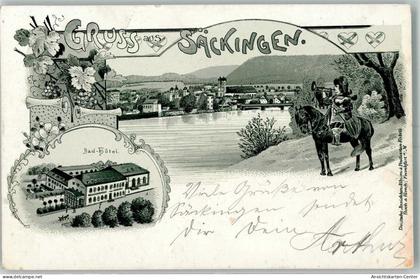 GRUSS aus SÄCKINGEN.
Bad-Hôtel.
Viele Grüße von
Säckingen sendet
dir Dein Arthur
Ansichtskarten-Center